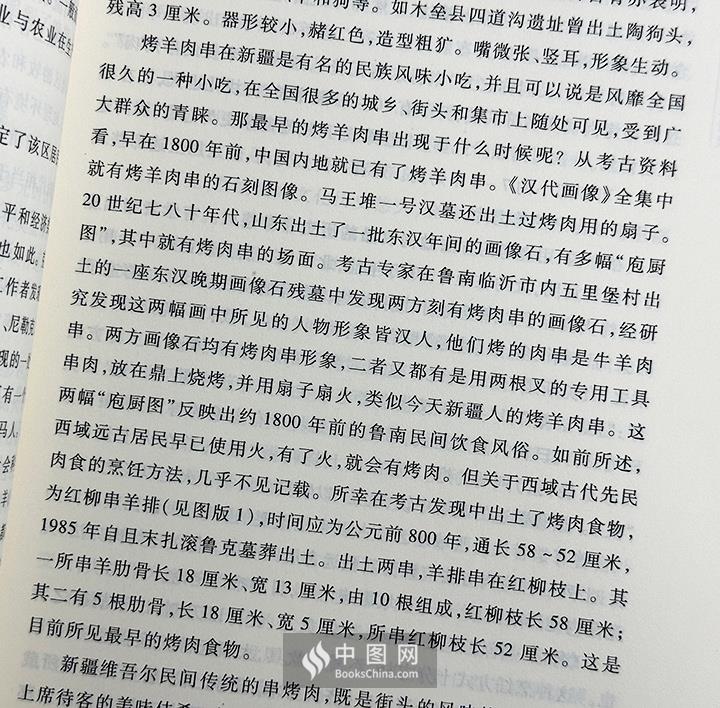 残高3厘米。器形较小,赭红色,造型粗犷。嘴微张、竖耳,形象生动。
烤羊肉串在新疆是有名的民族风味小吃,并且可以说是风靡全国
很久的一种小吃,在全国很多的城乡、街头和集市上随处可见,受到广
大群众的青睐。那最早的烤羊肉串出现于什么时候呢?从考古资料
看,早在1800年前,中国内地就已有了烤羊肉串。《汉代画像》全集中
就有烤羊肉串的石刻图像。马王堆一号汉墓还出土过烤肉用的扇子。
20世纪七八十年代,山东出土了一批东汉年间的画像石,有多幅“庖厨
图”,其中就有烤肉串的场面。考古专家在鲁南临沂市内五里堡村出
土的一座东汉晚期画像石残墓中发现两方刻有烤肉串的画像石,经研
究发现这两幅画中所见的人物形象皆汉人,他们烤的肉串是牛羊肉
串。两方画像石均有烤肉串形象,二者又都有是用两根叉的专用工具
串肉,放在鼎上烧烤,并用扇子扇火,类似今天新疆人的烤羊肉串。这
两幅“庖厨图”反映出约1800年前的鲁南民间饮食风俗。如前所述,
西域远古居民早已使用火,有了火,就会有烤肉。但关于西域古代先民
肉食的烹饪方法,几乎不见记载。所幸在考古发现中出土了烤肉食物,
为红柳串羊排(见图版1),时间应为公元前800年,通长58~52厘米,
1985年自且末扎滚鲁克墓葬出土。出土两串,羊排串在红柳枝上。其
一所串羊肋骨长18厘米、宽13厘米,由10根组成,红柳枝长58厘米;
其二有5根肋骨,长18厘米、宽5厘米,所串红柳枝长52厘米。这是
目前所见最早的烤肉食物。
新疆维吾尔民间传统的串烤肉,既是街头的风味
中图网
BooksChina.com
上席待客的美味佳肴
业与农业在
定了该区居
平和经济
也如此。
工作者发
、尼勒克
现的一
有一
马人。